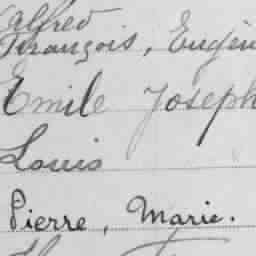 Alfred
François, Eugèn
Emile Joseph
Louis
Pierre, Marie.